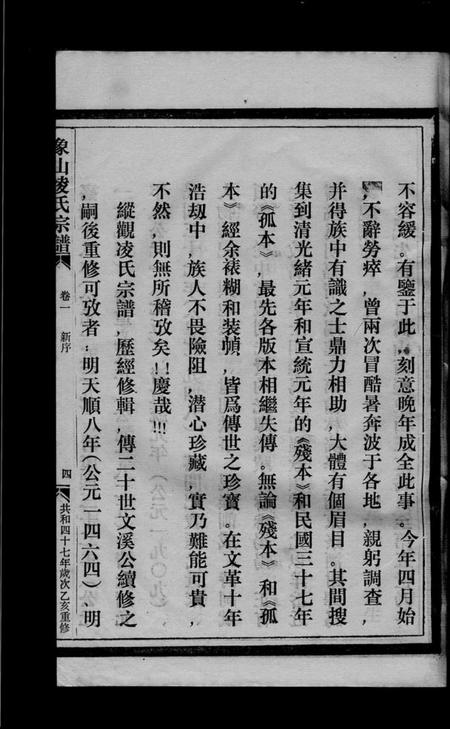 不容緩。有鑒于此，刻意晚年成全此事。今年四月始
，不辭勞瘁，曾兩次冒酷暑奔波于各地，親躬調查，
并得族中有識之士鼎力相助，大體有個眉目。其間搜
集到清光緒元年和宣統元年的《殘本》和民國三十七年
的《孤本》，最先各版本相繼失傳。無論《殘本》和《孤
本》經余裱糊和装幀，皆爲傳世之珍寶。在文革十年
浩劫中，族人不畏險阻，潜心珍藏，實乃難能可貴，
不然，則無所稽攷矣!!慶哉!!!
縱觀凌氏宗譜，歷經修輯，傳二十世文溪公續修之
，嗣後重修可攷者：明天順八年(公元一四六四)、明
象山凌氏宗譜
卷一
新序
四
共和四十七年歲次乙亥重修